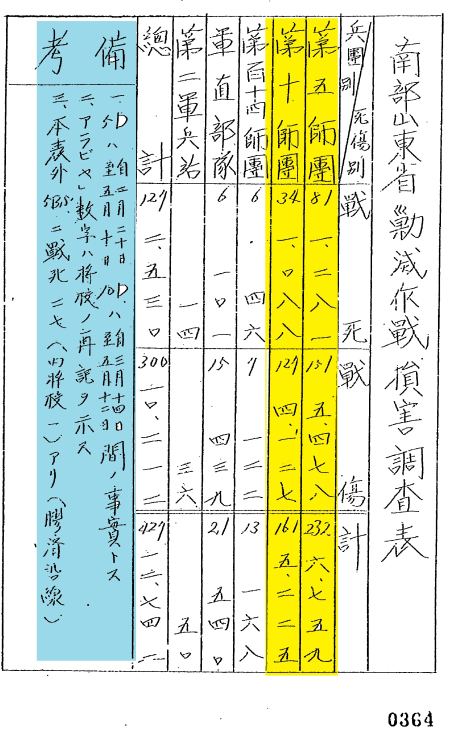 南部山東省勦滅作戰損害調査表
兵團別 死傷別 戰死 戰傷 計
第五師團 81 一、二八一 151 五、四七八 232 六、七五九
第十師團 34 一、〇八八 127 四、一三七 161 五、二二五
第百十四師團 6 四六 7 一二二 13 一六八
軍直部隊 6 一〇一 15 四三九 21 五四〇
第二軍兵站 一四 三六 五〇
總計 127 二、五三〇 300 一〇、二一二 427 一二、七四二
備考
一、5Dハ自二月二十日至五月十日 10Dハ自三月十四日至五月十二日間ノ事實トス
二、アラビヤ」数字ハ将校ノ再記ヲ示ス
三、本表外5BSニ戰死二七(内将校一)アリ(膠済沿線)
0364